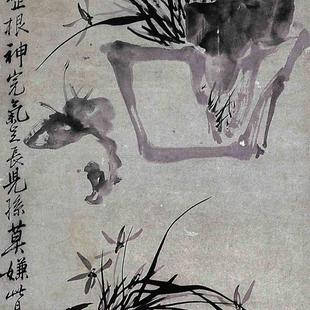 根神完氣足長兒孫莫嫌此